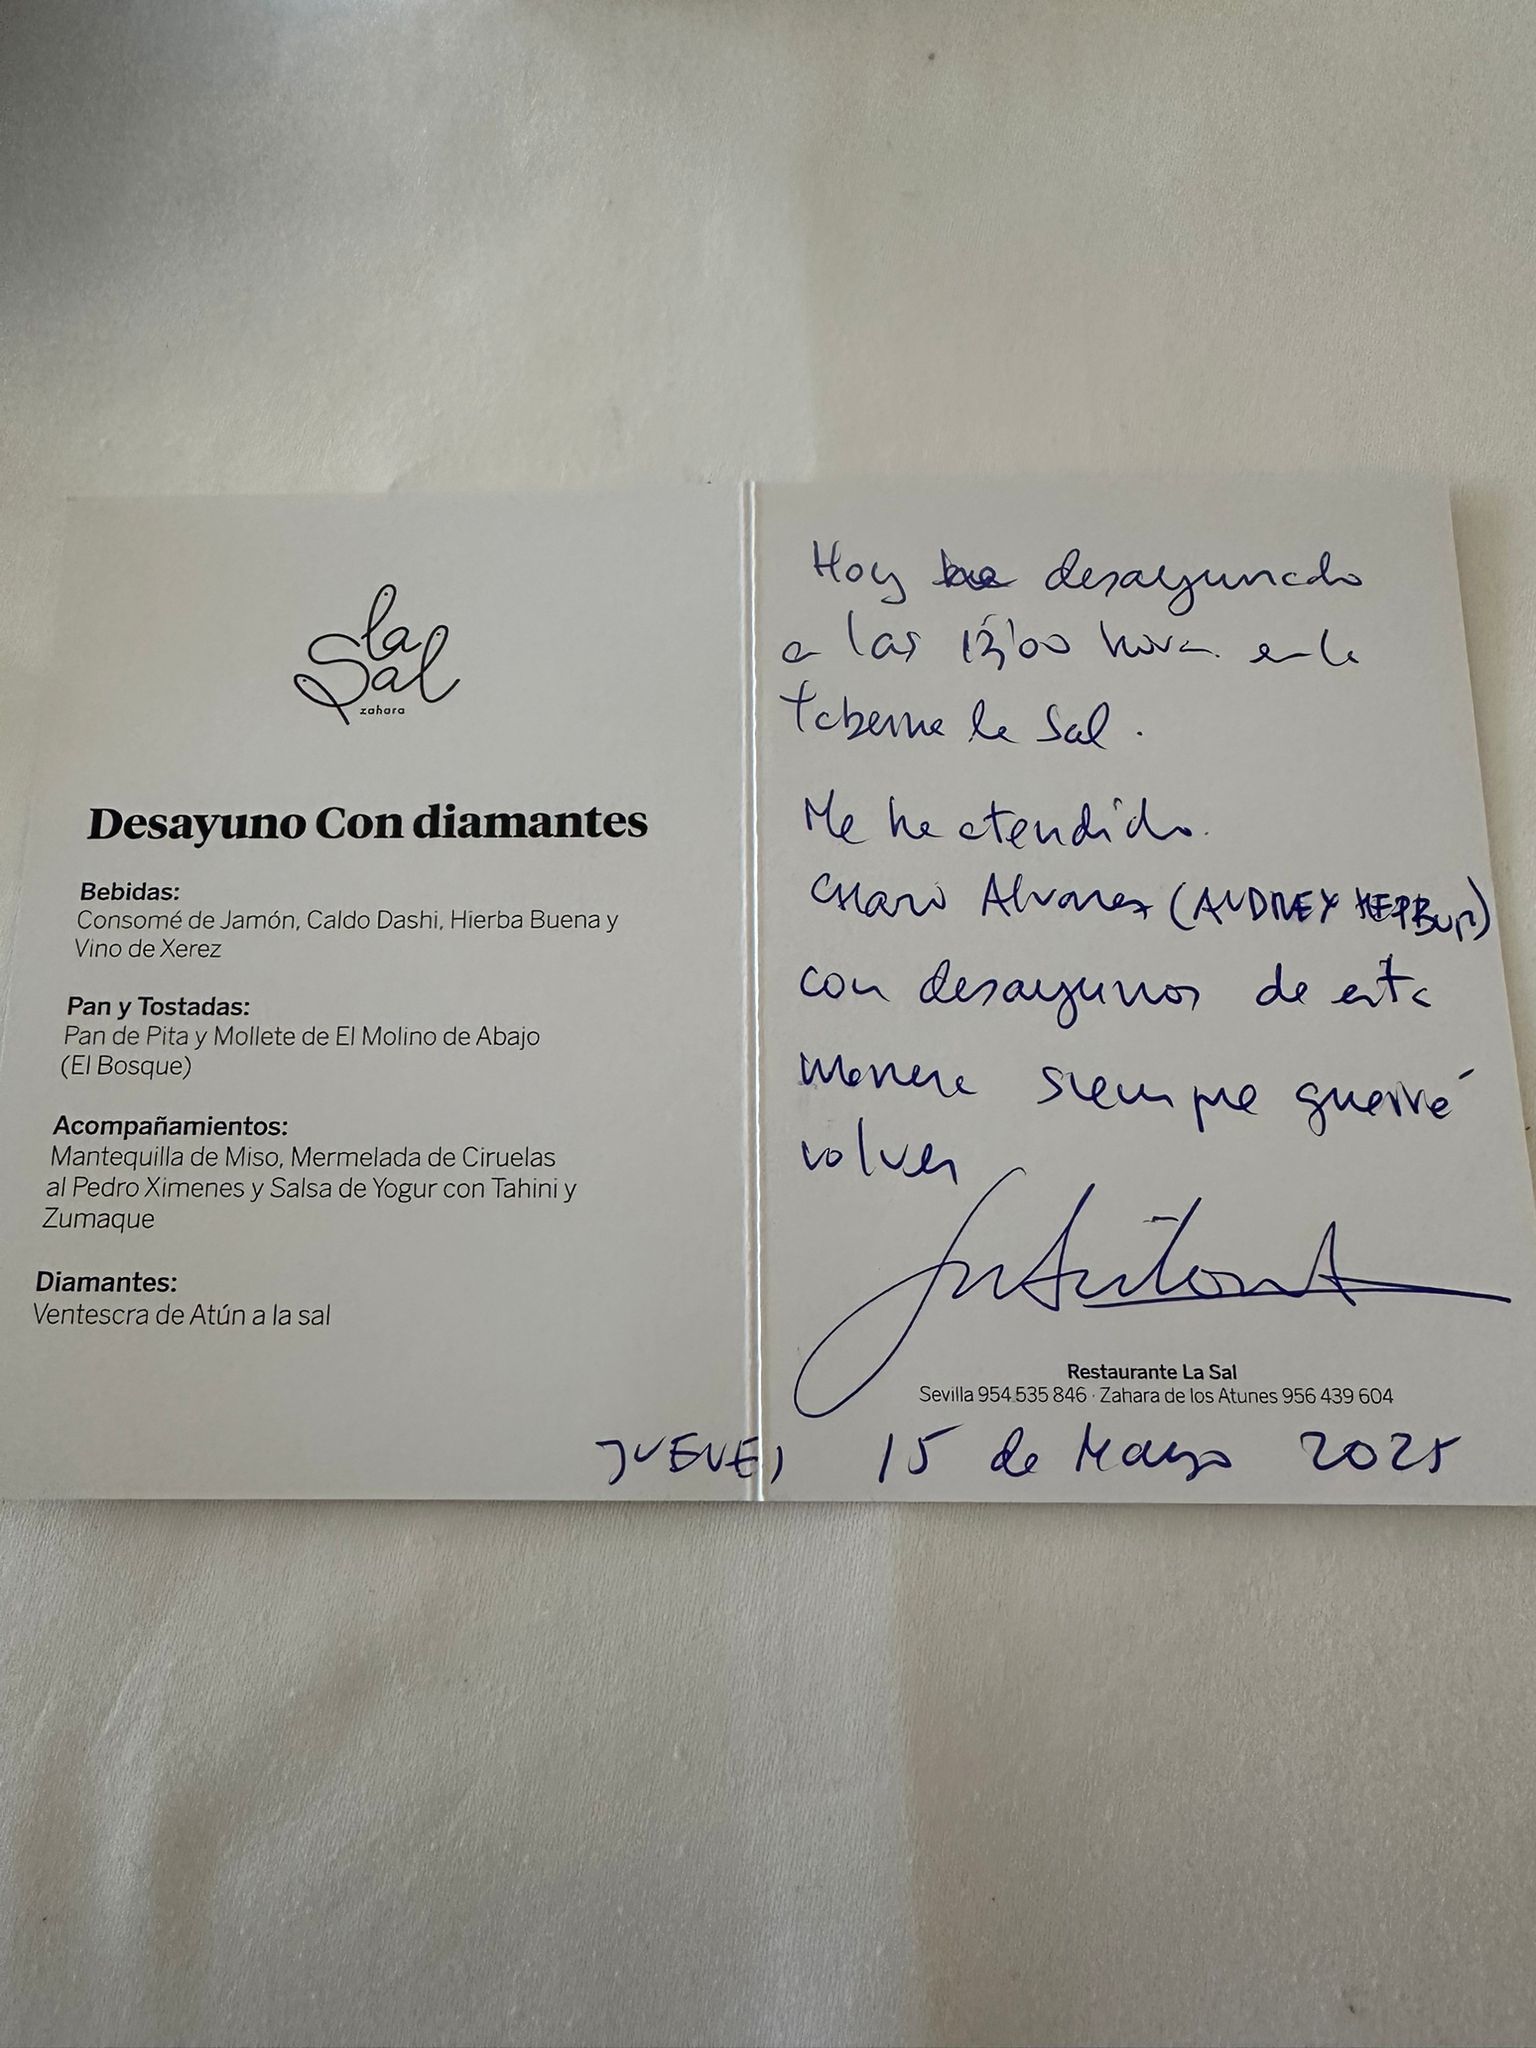 la
Sal
zahara
Desayuno Con diamantes
Bebidas:
Consomé de Jamón, Caldo Dashi, Hierba Buena y
Vino de Xerez
Pan y Tostadas:
Pan de Pita y Mollete de El Molino de Abajo
(El Bosque)
Acompañamientos:
Mantequilla de Miso, Mermelada de Ciruelas
al Pedro Ximenes y Salsa de Yogur con Tahini y
Zumaque
Diamantes:
Ventescra de Atún a la sal
Hoy he desayunado
a las hora en la
Taberna la Sal.
Me ha atendido
CHaro Alvarez (AUDREY HEPBurn)
con desayunos de esta
manera siempre querré
volver
Restaurante La Sal
Sevilla 954 535 846 · Zahara de los Atunes 956 439 604
JUEVES 15 de Mayo 2025